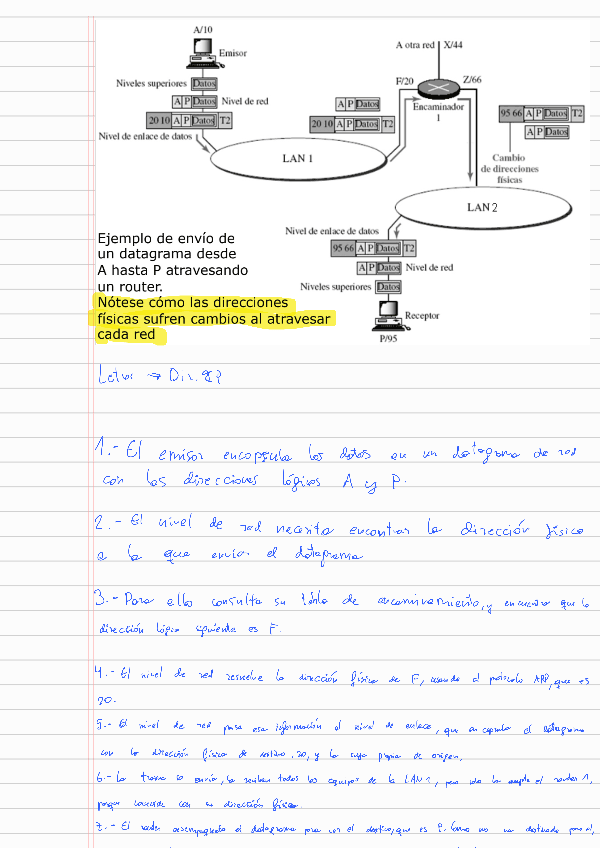 A/10
Emisor
A otra red X/44
Niveles superiores Datos
F/20 Z/66
A P Datos Nivel de red
A P Datos
Encaminador
1
20 10 A P Datos T2
20 10 A P Datos T2
95 66 A P Datos T2
Nivel de enlace de datos
A P Datos
LAN 1
Cambio
de direcciones
físicas
LAN 2
Nivel de enlace de datos
95 66 A P Datos T2
A P Datos Nivel de red
Niveles superiores Datos
Receptor
P/95
Ejemplo de envío de
un datagrama desde
A hasta P atravesando
un router.
Nótese cómo las direcciones
físicas sufren cambios al atravesar
cada red
Letras → Dir.
1.- El emisor encapsula los datos en un datagrama de red
con las direcciones lógicas A y P.
2.- El nivel de red necesita encontrar la dirección física
a la que enviar el datagrama
3.- Para ello consulta su tabla de encaminamiento, y encuentra que la
dirección lógica siguiente es F.
4.- El nivel de red resuelve la dirección física de F, usando el protocolo ARP, que es
20.
5.- El nivel de red pasa esa información al nivel de enlace, que encapsula el datagrama
con la dirección física de destino, 20, y la suya propia de origen,
6.- La trama se envía, la reciben todos los equipos de la LAN 1, pero solo la acepta el router 1,
porque coincide con su dirección física.
7.- El router desempaqueta el datagrama para ver el destino, que es P. Como no va destinado para él,